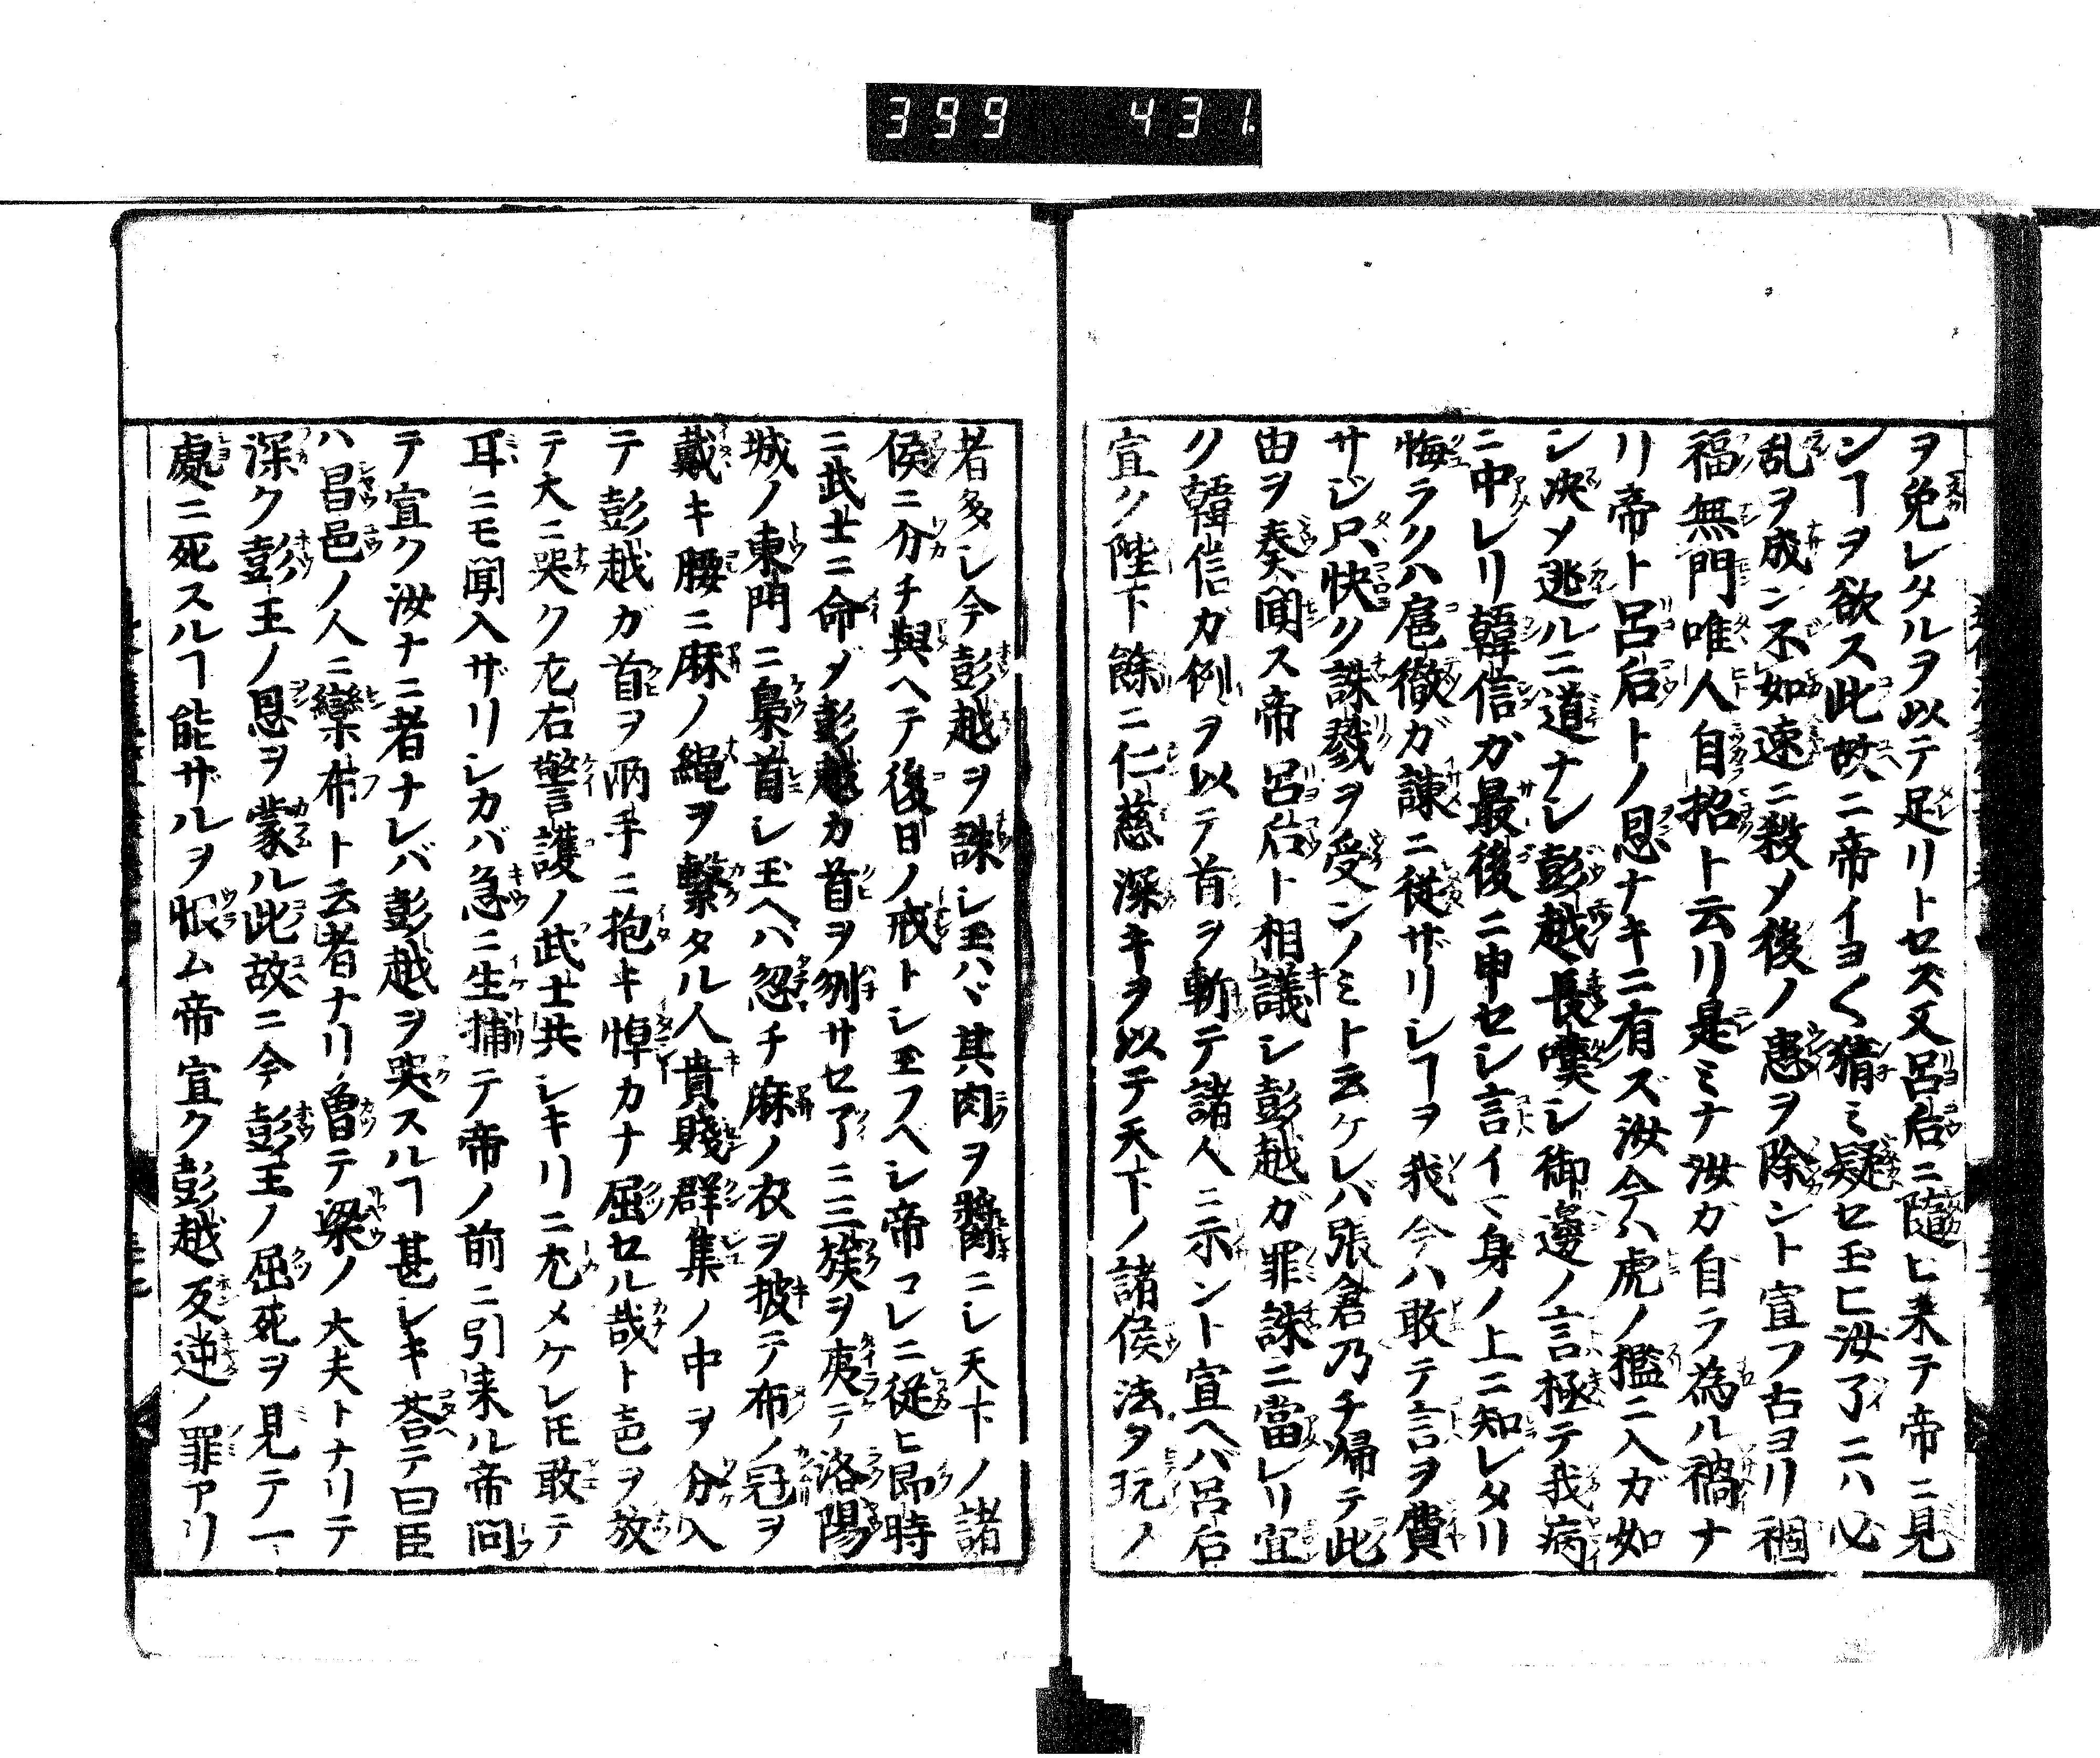 399 431
ヲ免レタルヲ以テ足リトセズ又呂后ニ隨ヒ来テ帝ニ見
ンヿヲ欲ス此故ニ帝イヨ〱猜ミ疑セ玉ヒ汝了ニハ必
乱ヲ成ン不如速ニ殺メ後ノ患ヲ除ント宣フ古ヨリ禍
福無門唯人自招ト云リ是ミナ汝ガ自ラ為ル禍ナ
リ帝ト呂后トノ恩ナキニ有ズ汝今ハ虎ノ檻ニ入ガ如
シ决メ逃ルニ道ナシ彭越長嘆シ御邊ノ言極テ我病
ニ中レリ韓信ガ最後ニ申セシ言イマ身ノ上ニ知レタリ
悔ラクハ扈徹ガ諫ニ従ザリシヿヲ我今ハ敢テ言ヲ費
サジ只快ク誅戮ヲ受ンノミト云ケレバ張倉乃チ帰テ此
由ヲ奏聞ス帝呂后ト相議シ彭越ガ罪誅ニ當レリ宜
ク韓信カ例ヲ以テ首ヲ斬テ諸人ニ示ント宣ヘバ呂后
宣ク陛下餘ニ仁慈深キヲ以テ天下ノ諸侯法ヲ玩ノ
者多シ今彭越ヲ誅シ玉ハヾ其肉ヲ醬ニシ天下ノ諸
侯ニ分チ與ヘテ後日ノ戒トシ玉フベシ帝コレニ従ヒ即時
ニ武士ニ命ジ彭越カ首ヲ刎サセ了ニ三族ヲ夷テ洛陽
城ノ東門ニ梟首シ玉ヘハ忽チ麻ノ衣ヲ披テ布ノ冠ヲ
戴キ腰ニ麻ノ縄ヲ繋タル人貴賤群集ノ中ヲ分入
テ彭越ガ首ヲ両手ニ抱キ悼カナ屈セル哉ト声ヲ放
テ大ニ哭ク左右警護ノ武士共シキリニ尤メケレ𪜈敢テ
耳ニモ聞入ザリシカバ急ニ生捕テ帝ノ前ニ引来ル帝問
テ宣ク汝ナニ者ナレバ彭越ヲ哭スルヿ甚シキ荅テ曰臣
ハ昌邑ノ人ニ欒布ト云者ナリ曽テ梁ノ大夫トナリテ
深ク彭王ノ恩ヲ蒙ル此故ニ今彭王ノ屈死ヲ見テ一
處ニ死スルヿ能ザルヲ恨ム帝宣ク彭越反逆ノ罪アリ